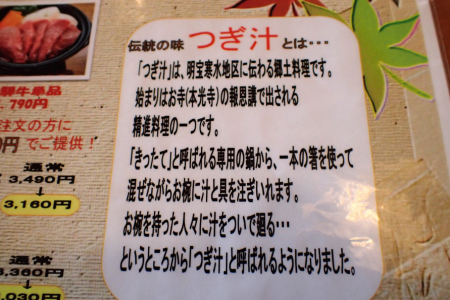 伝統の味 つぎ汁 とは…
「つぎ汁」は、明宝寒水地区に伝わる郷土料理です。
始まりはお寺(本光寺)の報恩講で出される
精進料理の一つです。
「きったて」と呼ばれる専用の鍋から、一本の箸を使って
混ぜながらお椀に汁と具を注ぎいれます。
お椀を持った人々に汁をついで廻る…
というところから「つぎ汁」と呼ばれるようになりました。
騨牛単品
790円
注文の方に
円でご提供!
通常
3,490円
↓
3,160円
通常
3,360円
↓
,030円